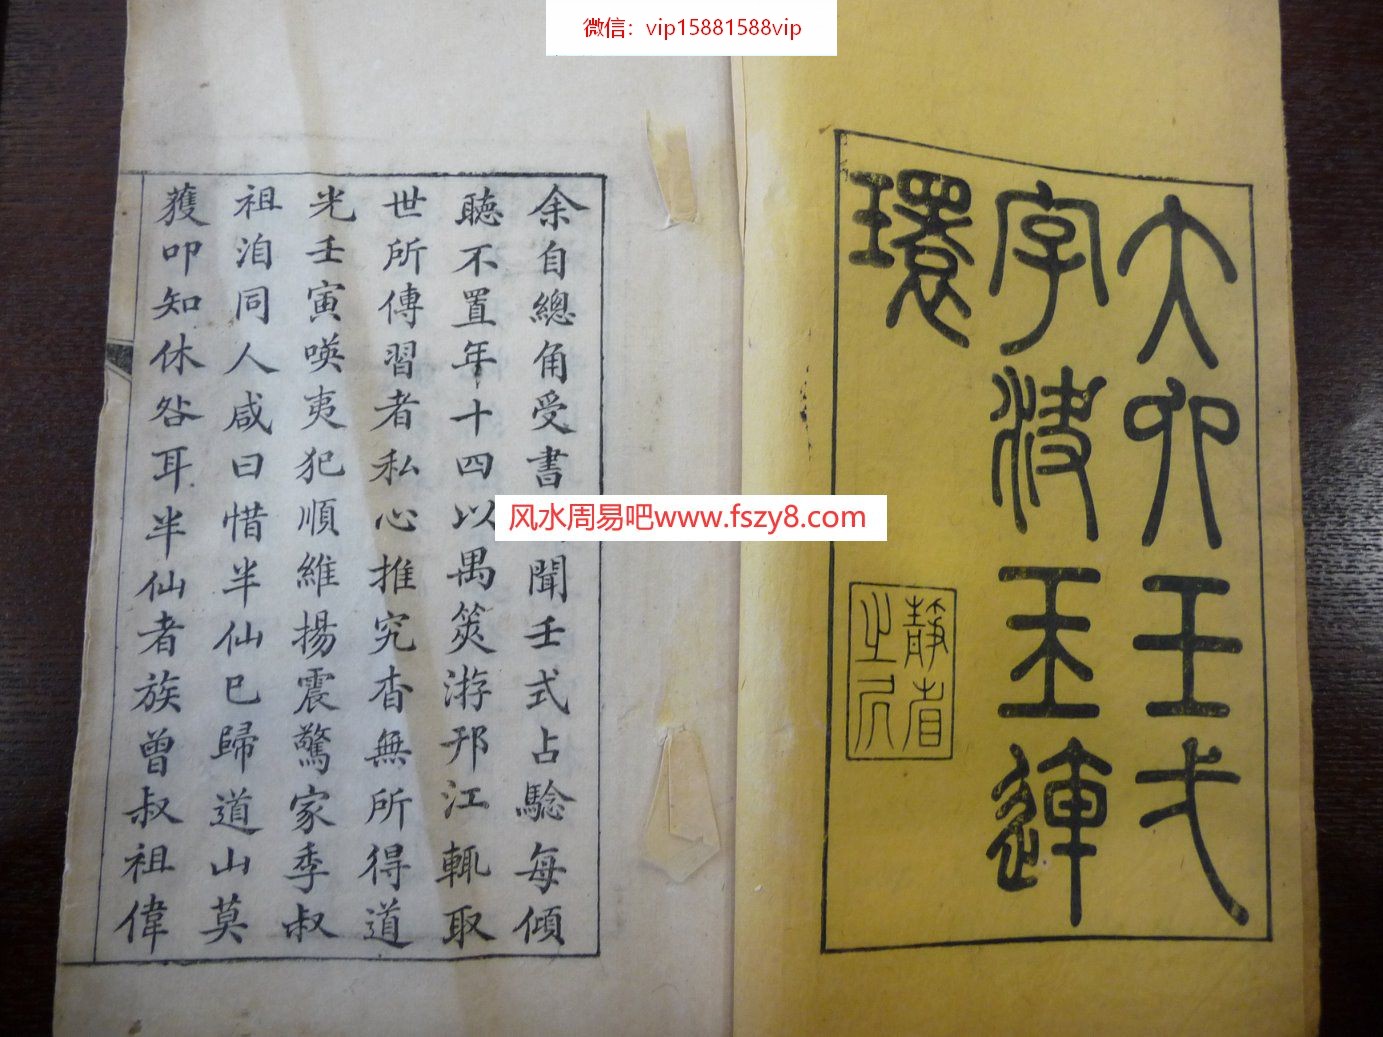 微信：vip15881588vip
大六壬弌
字決玉連
環
靜者
余自總角受書聞壬式占騐每傾
聽不置年十四以禺筴游邗江輒取
世所傳習者私心推究杳無所得道
光壬寅暎夷犯順維揚震驚家季叔
祖洎同人咸曰惜半仙已歸道山莫
獲叩知休咎耳半仙者族曾叔祖偉
风水周易吧www.fszy8.com